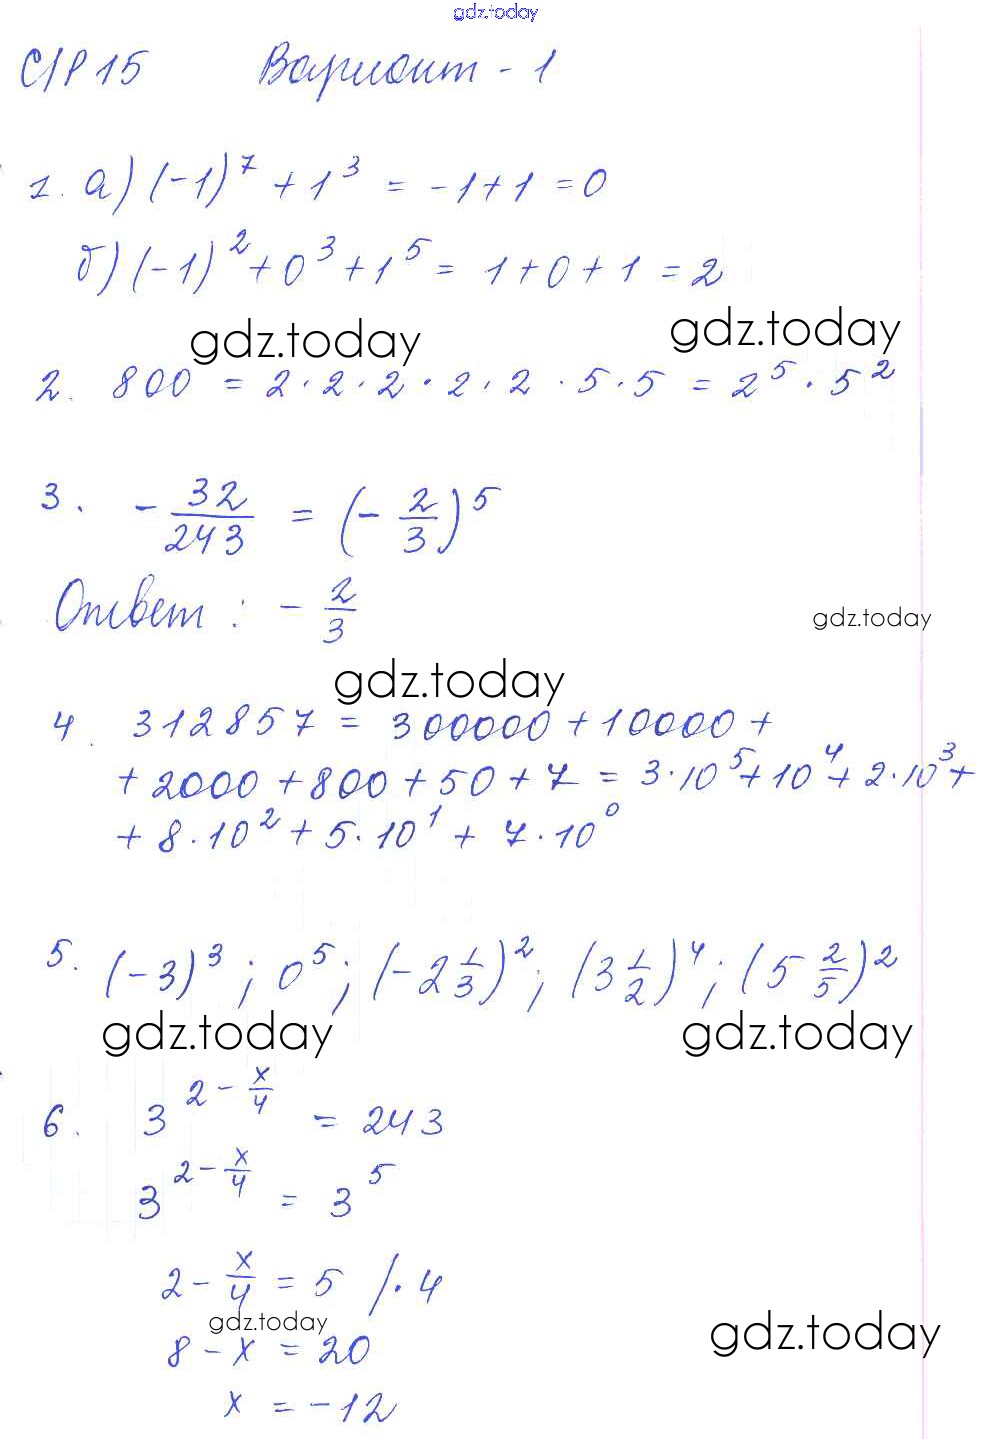 gdz.today
С/Р 15 Вариант - 1
1. а) (-1)^7 + 1^3 = -1 + 1 = 0
б) (-1)^2 + 0^3 + 1^5 = 1 + 0 + 1 = 2
gdz.today gdz.today
2. 800 = 2 · 2 · 2 · 2 · 2 · 5 · 5 = 2^5 · 5^2
3. - 32/243 = (- 2/3)^5
Ответ : - 2/3
gdz.today
gdz.today
4. 312857 = 300000 + 10000 +
+ 2000 + 800 + 50 + 7 = 3·10^5 + 10^4 + 2·10^3 +
+ 8·10^2 + 5·10^1 + 7·10^0
5. (-3)^3 ; 0^5 ; (-2 1/3)^2 ; (3 1/2)^4 ; (5 2/5)^2
gdz.today gdz.today
6. 3^(2 - x/4) = 243
3^(2 - x/4) = 3^5
2 - x/4 = 5 /· 4
gdz.today gdz.today
8 - x = 20
x = -12